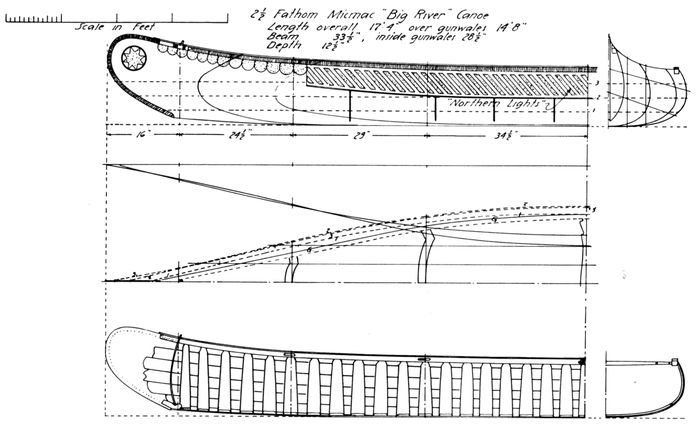 2½ Fathom Micmac "Big River" Canoe
Scale in Feet
Length overall 17'4" over gunwales 14'8"
Beam 33½", inside gunwales 28½"
Depth 12½"
"Northern Lights"
3
2
1
16" 24½" 29" 34½"